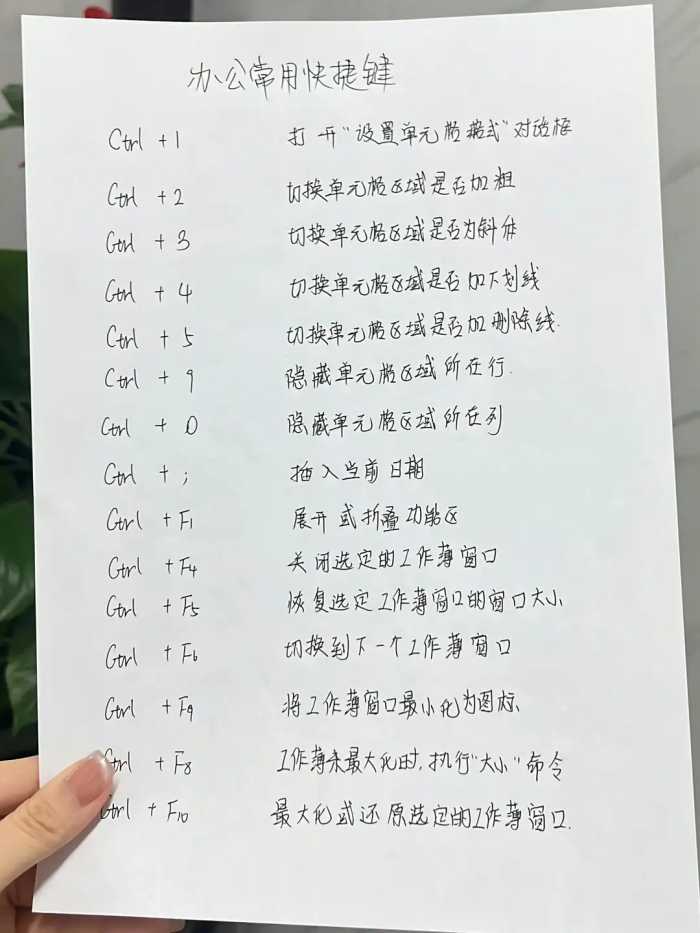 办公常用快捷键
Ctrl +1 打开"设置单元格格式"对话框
Ctrl +2 切换单元格区域是否加粗
Ctrl +3 切换单元格区域是否为斜体
Ctrl +4 切换单元格区域是否加下划线
Ctrl +5 切换单元格区域是否加删除线.
Ctrl +9 隐藏单元格区域所在行.
Ctrl +0 隐藏单元格区域所在列
Ctrl +; 插入当前日期
Ctrl +F1 展开或折叠功能区
Ctrl +F4 关闭选定的工作薄窗口
Ctrl +F5 恢复选定工作薄窗口的窗口大小
Ctrl +F6 切换到下一个工作薄窗口
Ctrl +F9 将工作薄窗口最小化为图标
Ctrl +F8 工作薄未最大化时,执行"大小"命令
Ctrl +F10 最大化或还原选定的工作薄窗口.